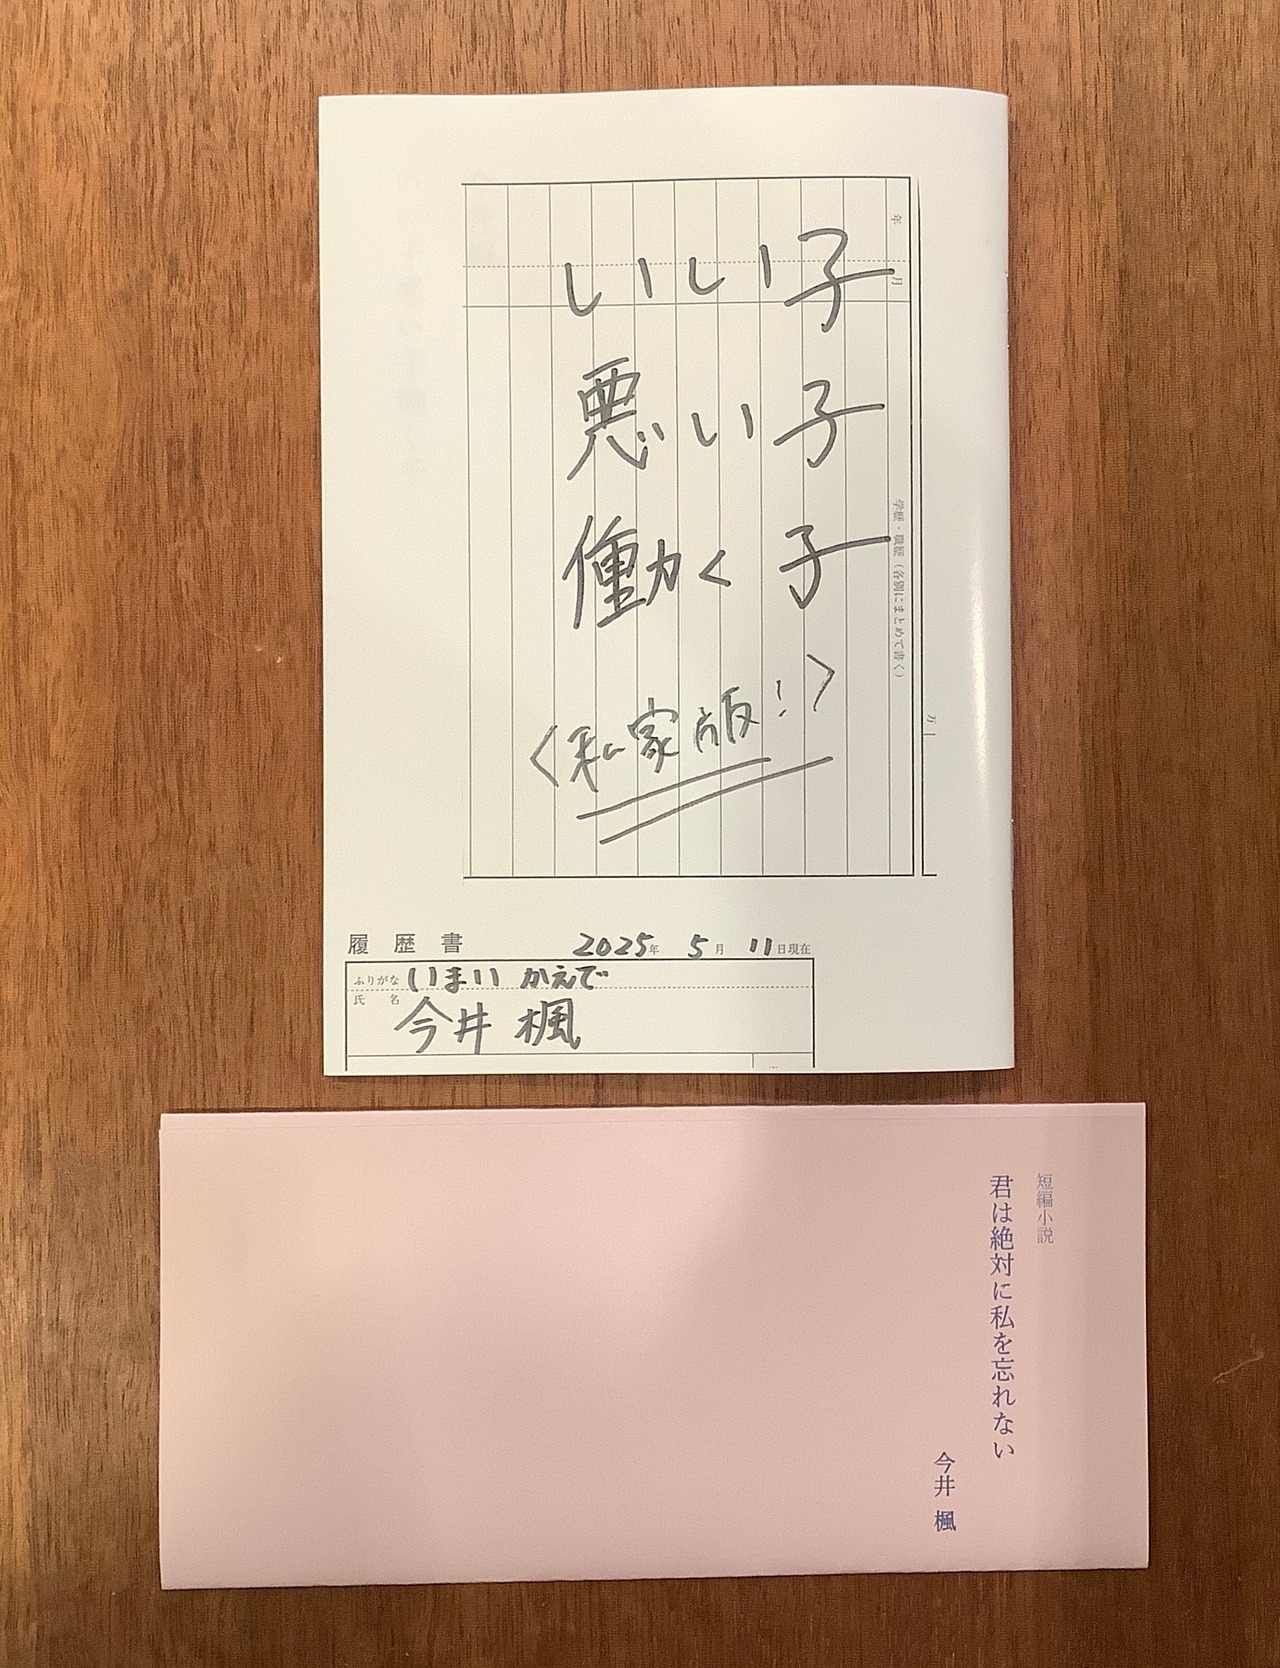 いい子
悪い子
働く子
〈私家版!〉
年
月
学歴・職歴(各別にまとめて書く)
履歴書 2025年 5月 11日現在
ふりがな いまい かえで
氏 名 今井 楓
短編小説
君は絶対に私を忘れない
今井 楓